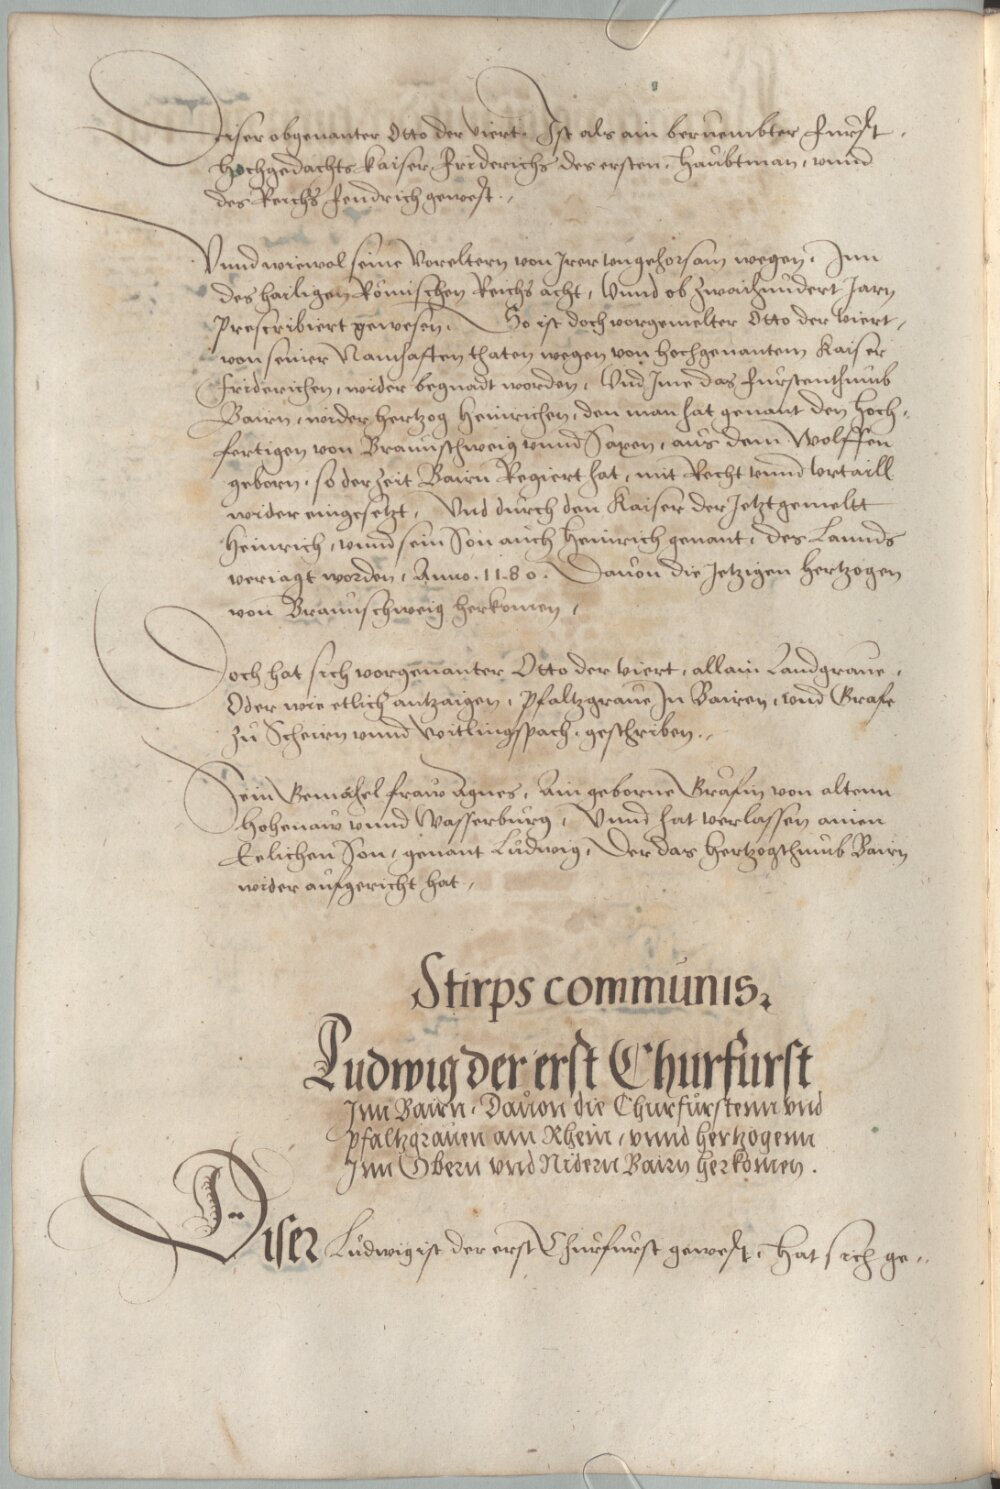 Diser obgenanter Otto der viert. Ist als ain beruembter Fürst,
hochgedachts Kaiser Friderichs des ersten, Haubtman, unnd
des Reichs Fendrich gewest.,
Unnd wiewol seine Voreltern von Irer ungehorsam wegen, Inn
des hailigen Römischen Reichs acht, Unnd ob zwaihundert Jarn
Prescribiert gewesen, So ist doch vorgemelter Otto der viert,
von seiner Namhafften thaten wegen von hochgenantem Kaiser
Friderichen, wider begnadt worden, Und Ime das Fürstenthumb
Bairn, wider Hertzog Heinrichen, den man hat genant den Hoch,
fertigen von Braunschweig unnd Saxen, aus dem Wolffen
geborn, so der Zeit Bairn Regiert hat, mit Recht unnd Urtaill
wider eingesetzt, Und durch den Kaiser der Jetzt gemeltt
Heinrich, unnd sein Son auch Heinrich genant, des Lannds
veriagt worden, Anno .1180. Davon die Jetzigen Hertzogen
von Braunschweig herkomen,
Doch hat sich vorgenanter Otto der viert, allain Landgraue,
Oder wie etlich antzaigen, Pfaltzgraue In Bairen, und Grafe
zu Scheirn unnd Witlingspach, geschriben.,
Sein Gemahel fraw Agnes, Ain geborne Gräfin von altenn
Hohenaw unnd Wasserburg, Unnd hat verlassen ainen
Eelichen Son, genant Ludwig, Der das Hertzogthumb Bairn
wider aufgericht hat,
Stirps communis,
Ludwig der erst Churfürst
Inn Bairn, Davon die Churfürstenn und
Pfaltzgrauen am Rhein, unnd Hertzogenn
Inn Obern und Nidern Bairn herkomen.
Diser Ludwig ist der erst Churfürst gewest, Hat sich ge,,